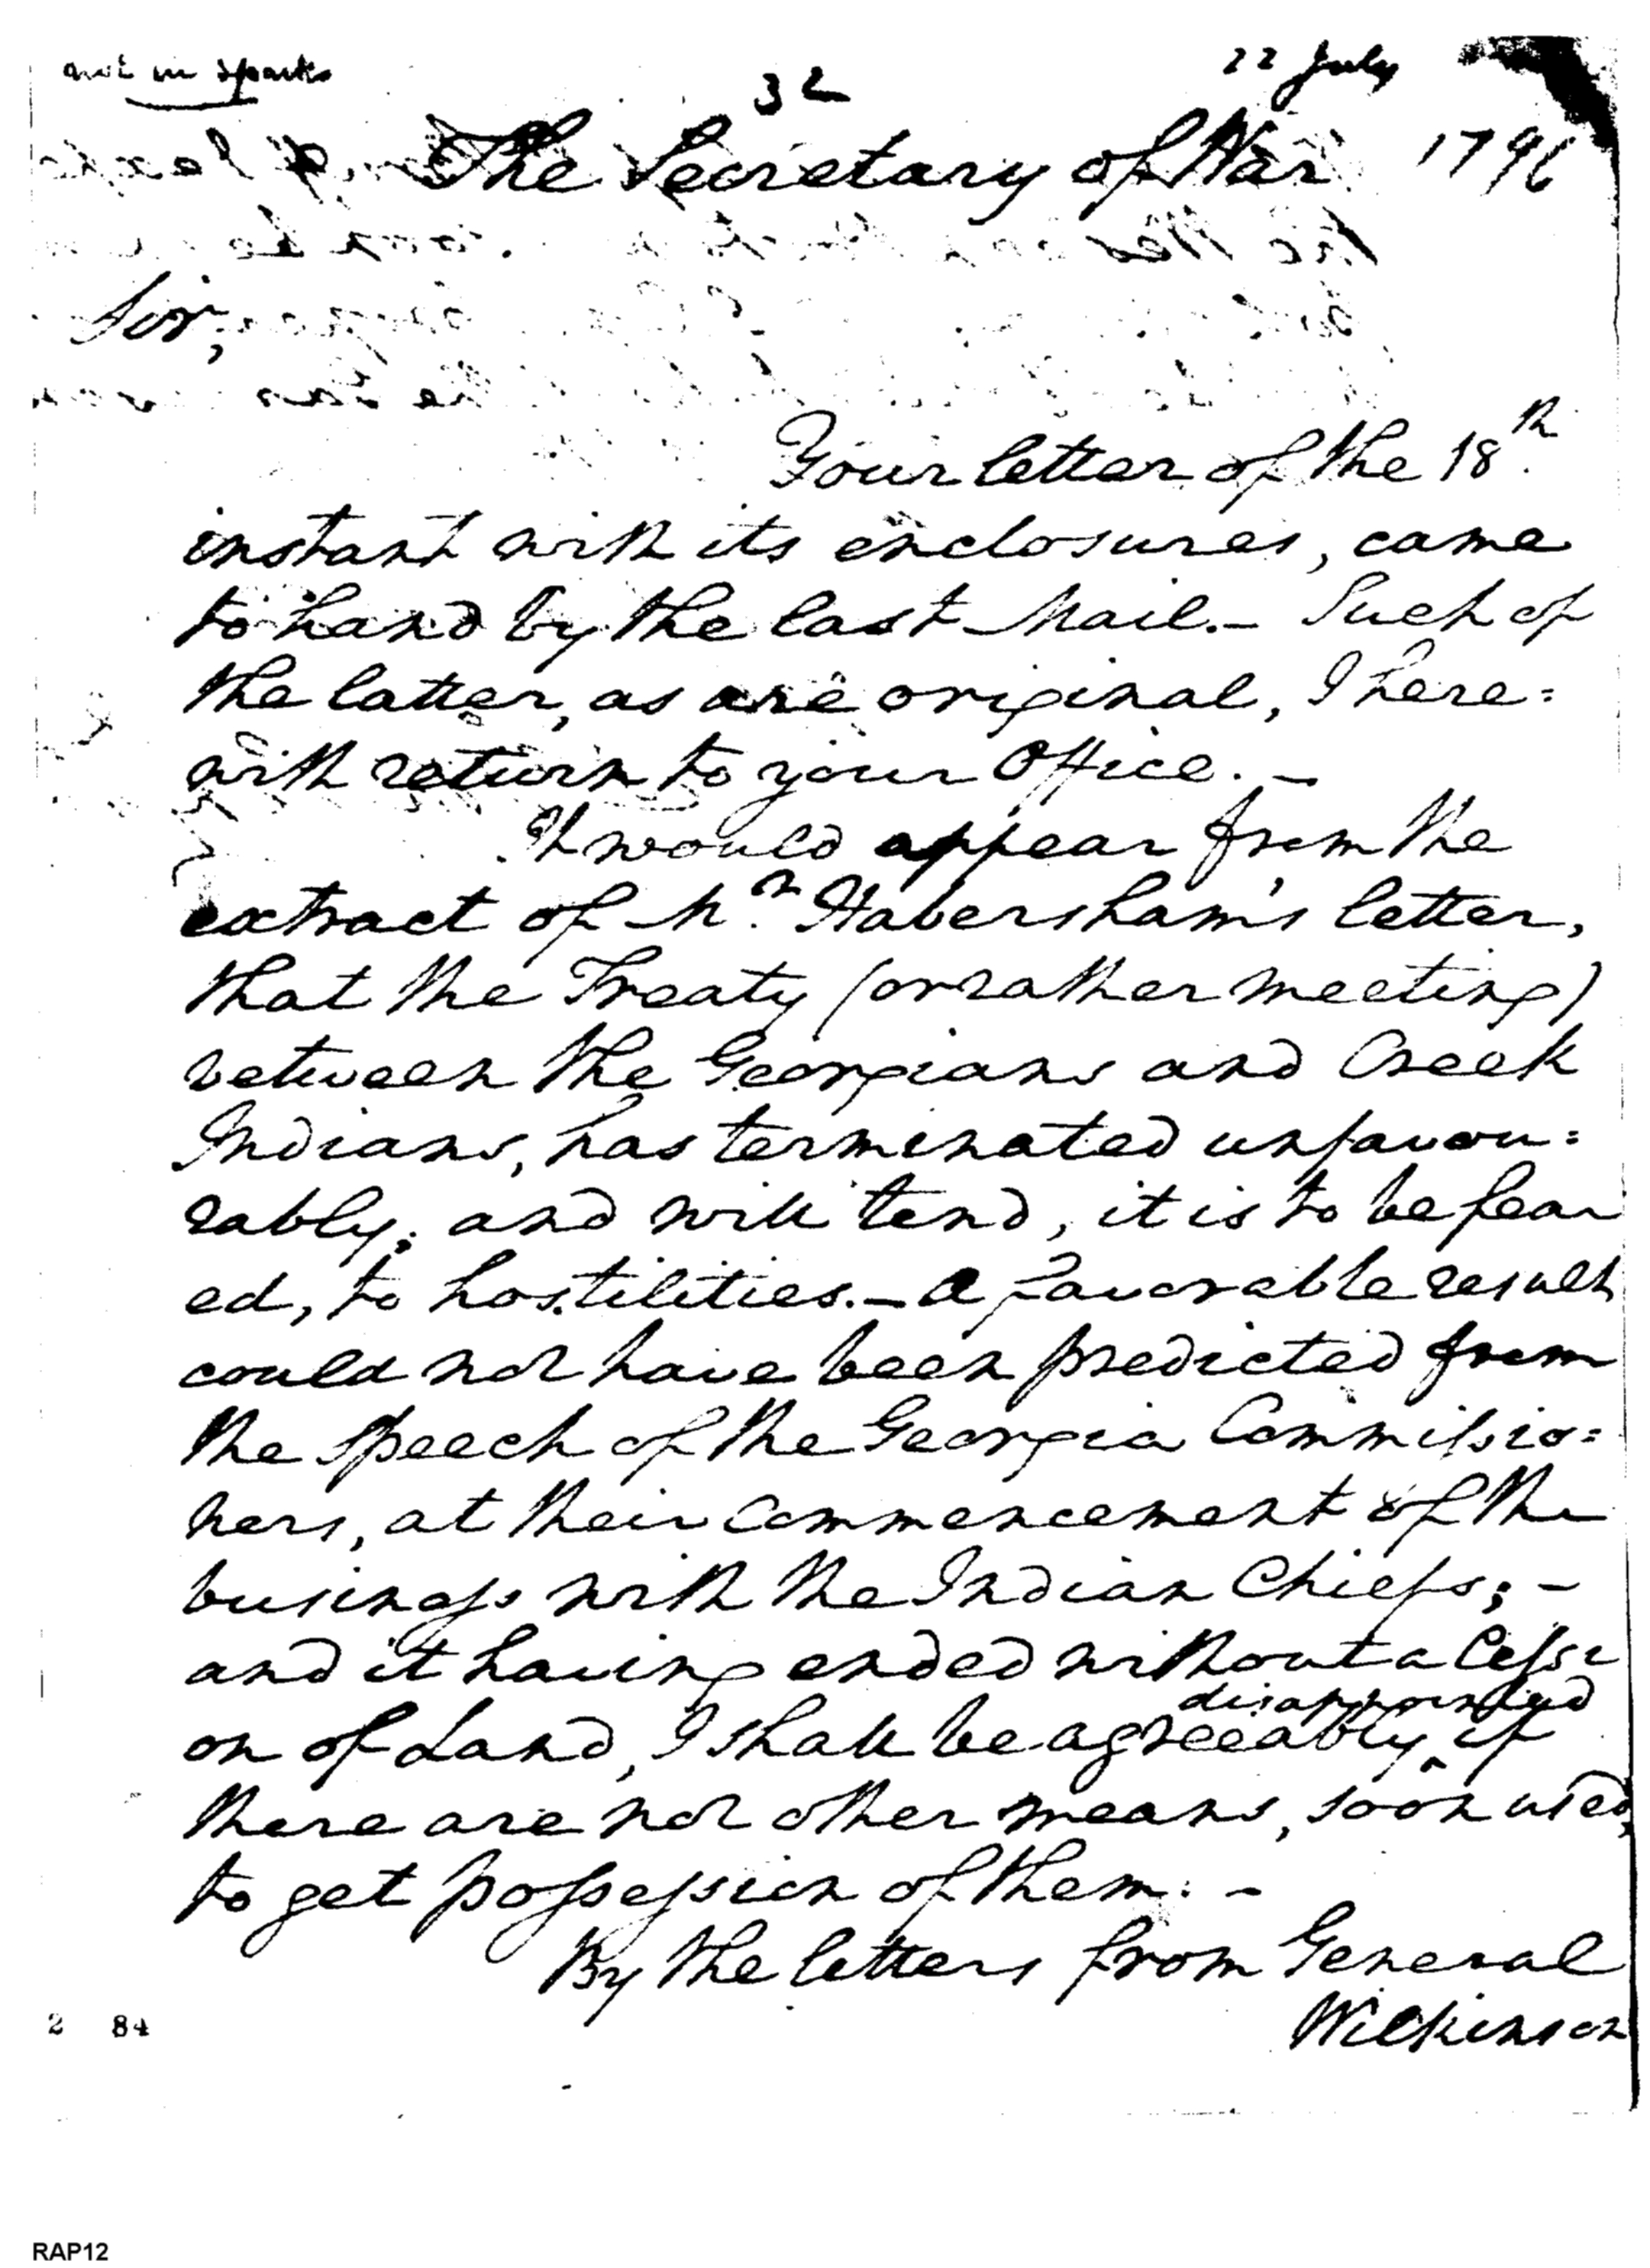 not in Sparks
32
22 July
The Secretary of War 1796
Sir,
Your letter of the 18th.
instant with its enclosures, came
to hand by the last Mail.— Such of
the latter, as are original, I here=
with return to your Office.—
It would appear from the
extract of Mr. Habersham's letter,
that the Treaty (or rather meeting)
between the Georgians and Creek
Indians, has terminated unfavou=
rably; and will tend, it is to be fear
ed, to hostilities.— A favorable result
could not have been predicted from
the speech of the Georgia Commissio=
ners, at their commencement of the
business with the Indian Chiefs;—
and it having ended without a Cessi
on of Land, I shall be agreeably ^ disappointed if
there are not other means, soon used,
to get possession of them.—
By the letters from General
Wilkinson
2 84
RAP12